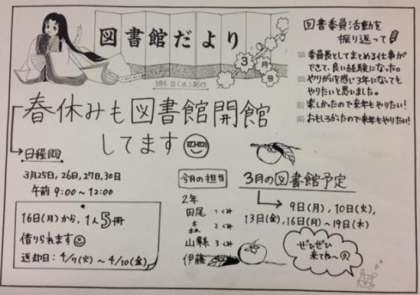 図書館だより
3月号
春休みも図書館開館
してます
日程
3月25日,26日,27日,30日
午前 9:00〜12:00
16日(月)から、1人5冊
借りられます
返却日: 4/9(火)〜4/10(金)
今月の担当
2年
田尾
森
山縣
伊藤
3月の図書館予定
9日(月),10日(火),
13日(金),16日(月)〜19日(木)
ぜひぜひ
来てね〜
図書委員活動を
振り返って
委員長としてまとめる仕事が
できて、良い経験になった。
やりがいを感じ3年になっても
やりたいと思いました。
楽しかったので来年もやりたい!
おもしろかったので来年もやりたい!